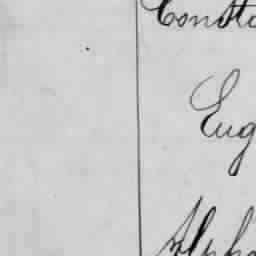 Consta
Eug
Alpho